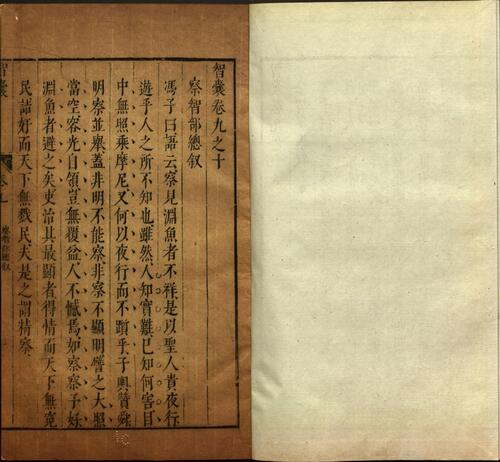 智囊卷九之十
察智部總叙
馮子曰語云察見淵魚者不祥是以聖人貴夜行
遊乎人之所不知也雖然人知實難已知何害目
中無照乘摩尼又何以夜行而不躓乎子輿贊舜
明察並舉蓋非明不能察非察不顯明譬之大照
當空容光自領豈無覆盆人不憾焉如察察予好
淵魚者避之矣吏治其最顯者得情而天下無冤
民詰奸而天下無戮民夫是之謂精察
智囊
卷九
察智部總叙